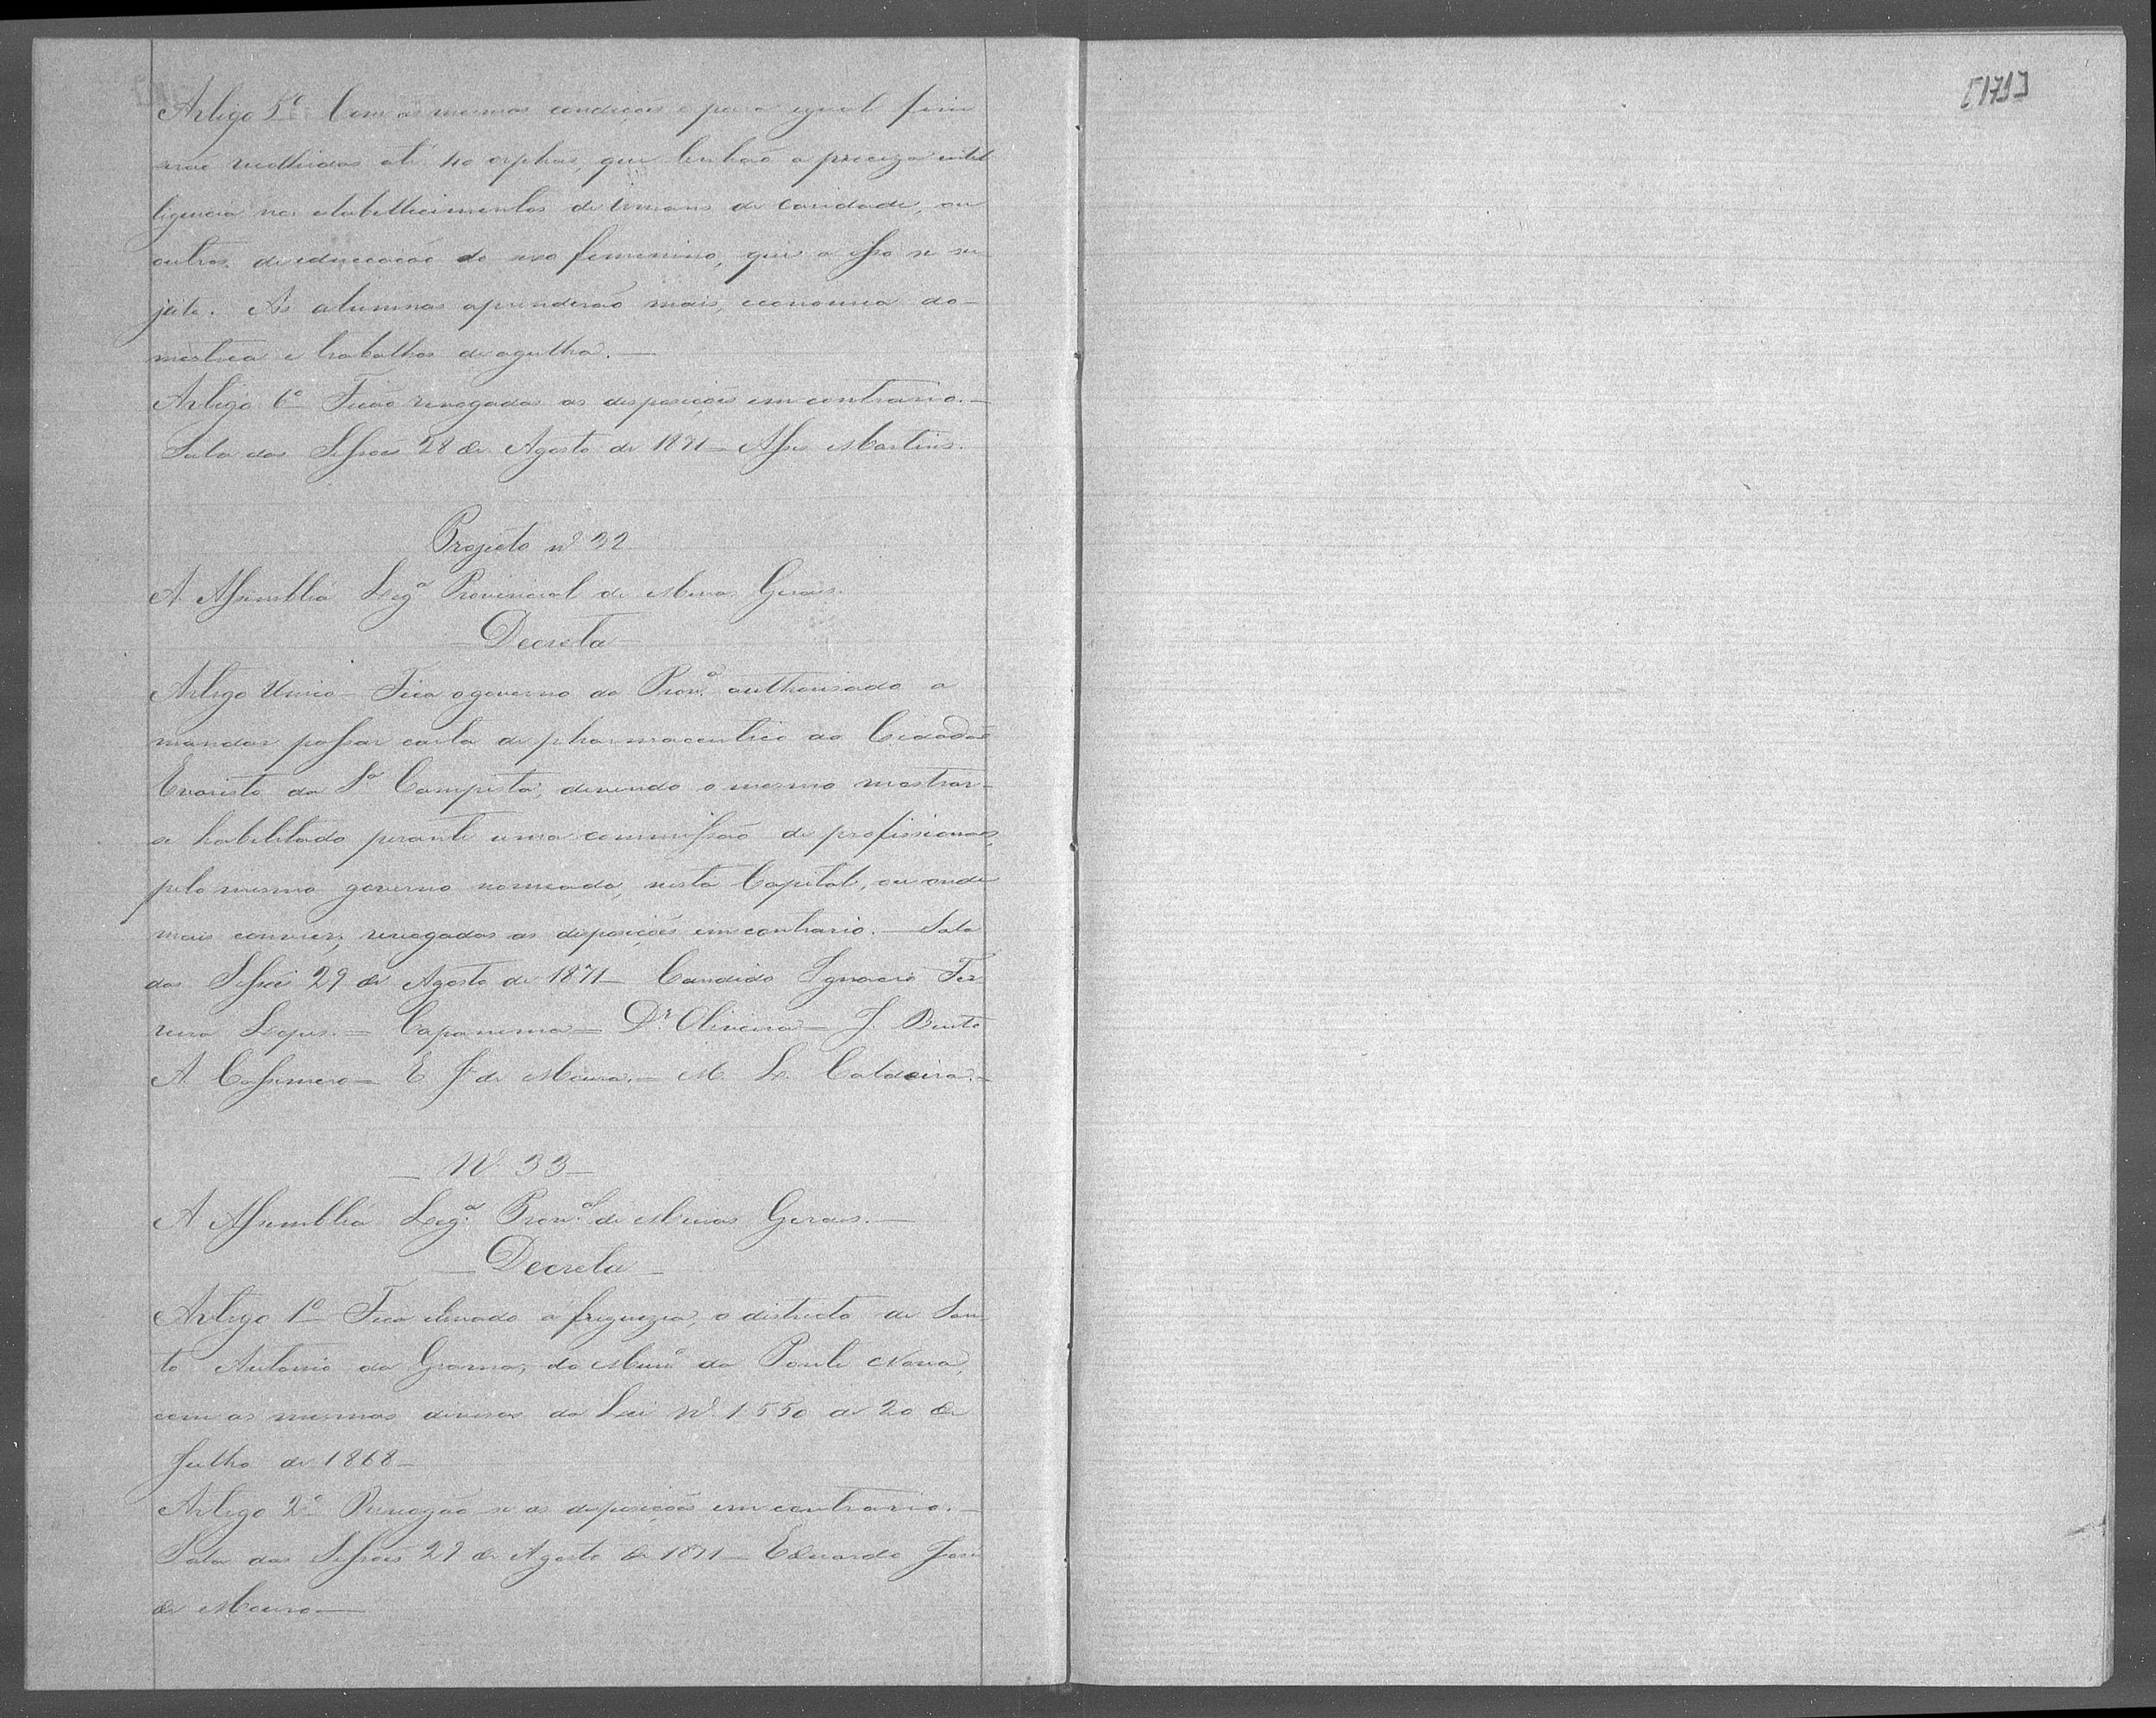 [173]
Artigo 5º Com as mesmas condições e para igual fim
serão recolhidas até 40 orphãs, que tenhão a preciza intel
ligencia nos estabellecimentos de Irmans de Caridade, ou
outros de educação do sexo femenino, que a isso se su
jeite. As alumnas aprenderão mais, economia do-
mestica e trabalhos de agulha.—
Artigo 6º Ficão revogadas as disposições em contrario.—
Sala das Sessões 28 de Agosto de 1871— Assis Martins.
Projecto nº 32
A Assembléa Legª Provincial de Minas Geraes.
—Decreta—
Artigo Unico— Fica o governo da Provª authorisado a
mandar passar carta de pharmaceutico ao Cidadão
Evaristo da Sª Campista, devendo o mesmo mostrar-
se habilitado perante uma commissão de profissionaes,
pelo mesmo governo nomeada, nesta Capital, ou onde
mais convier; revogadas as disposições em contrario.— Sala
das Sessões 29 de Agosto de 1871— Candido Ignacio Fer
reira Lopes.= Capanema= Dr Oliveira— J. Bento
A. Cassemero= E. J. de Moura.— M. L. Caldeira.—
—Nº 33—
A Assembléa Legª. Provªl de Minas Geraes.—
—Decreta—
Artigo 1º— Fica elevado a freguezia, o districto de San
to Antonio da Grama, do Munº da Ponte Nova,
com as mesmas divisas da Lei Nº 1550 de 20 de
Julho de 1868—
Artigo 2º Revogão se as disposições em contrario.—
Sala das Sessões 29 de Agosto de 1871— Eduardo José
de Moura—